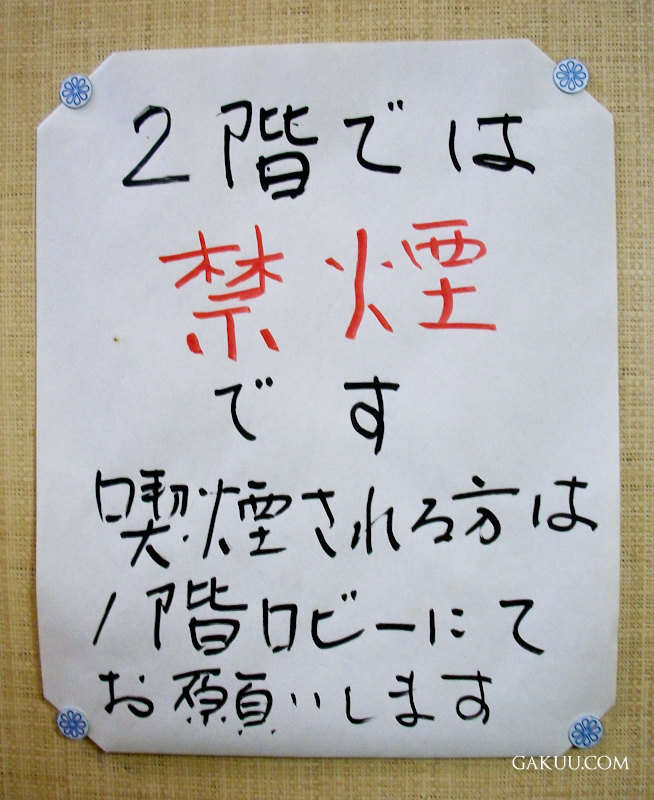 2階では
禁煙
です
喫煙される方は
1階ロビーにて
お願いします
GAKUU.COM